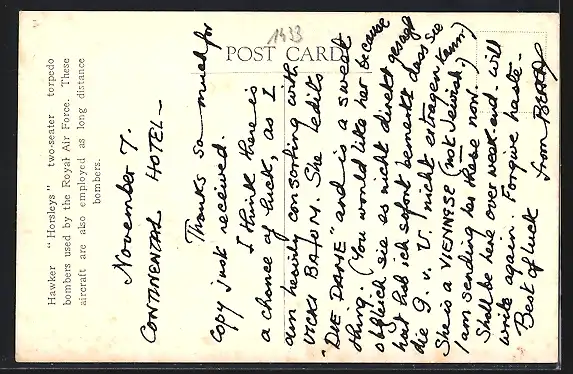 1933
POST CARD
Hawker "Horsleys" two-seater torpedo
bombers used by the Royal Air Force. These
aircraft are also employed as long distance
bombers.
November 7.
CONTINENTAL HOTEL—
Thanks so much for
copy just received.
I think there is
a chance of luck, as I
am heavily consorting with
VICKI BAUM. She edits
"DIE DAME" and is a sweet
thing. (You would like her because
obgleich sie es nicht direkt gesagt
hat hab ich sofort bemerkt dass sie
die G. v. U. nicht ertragen kann.)
She is a VIENNESE (not Jewish.)
I am sending her these now.
Shall be here over week-end - will
write again. Forgive haste -
Best of luck
from